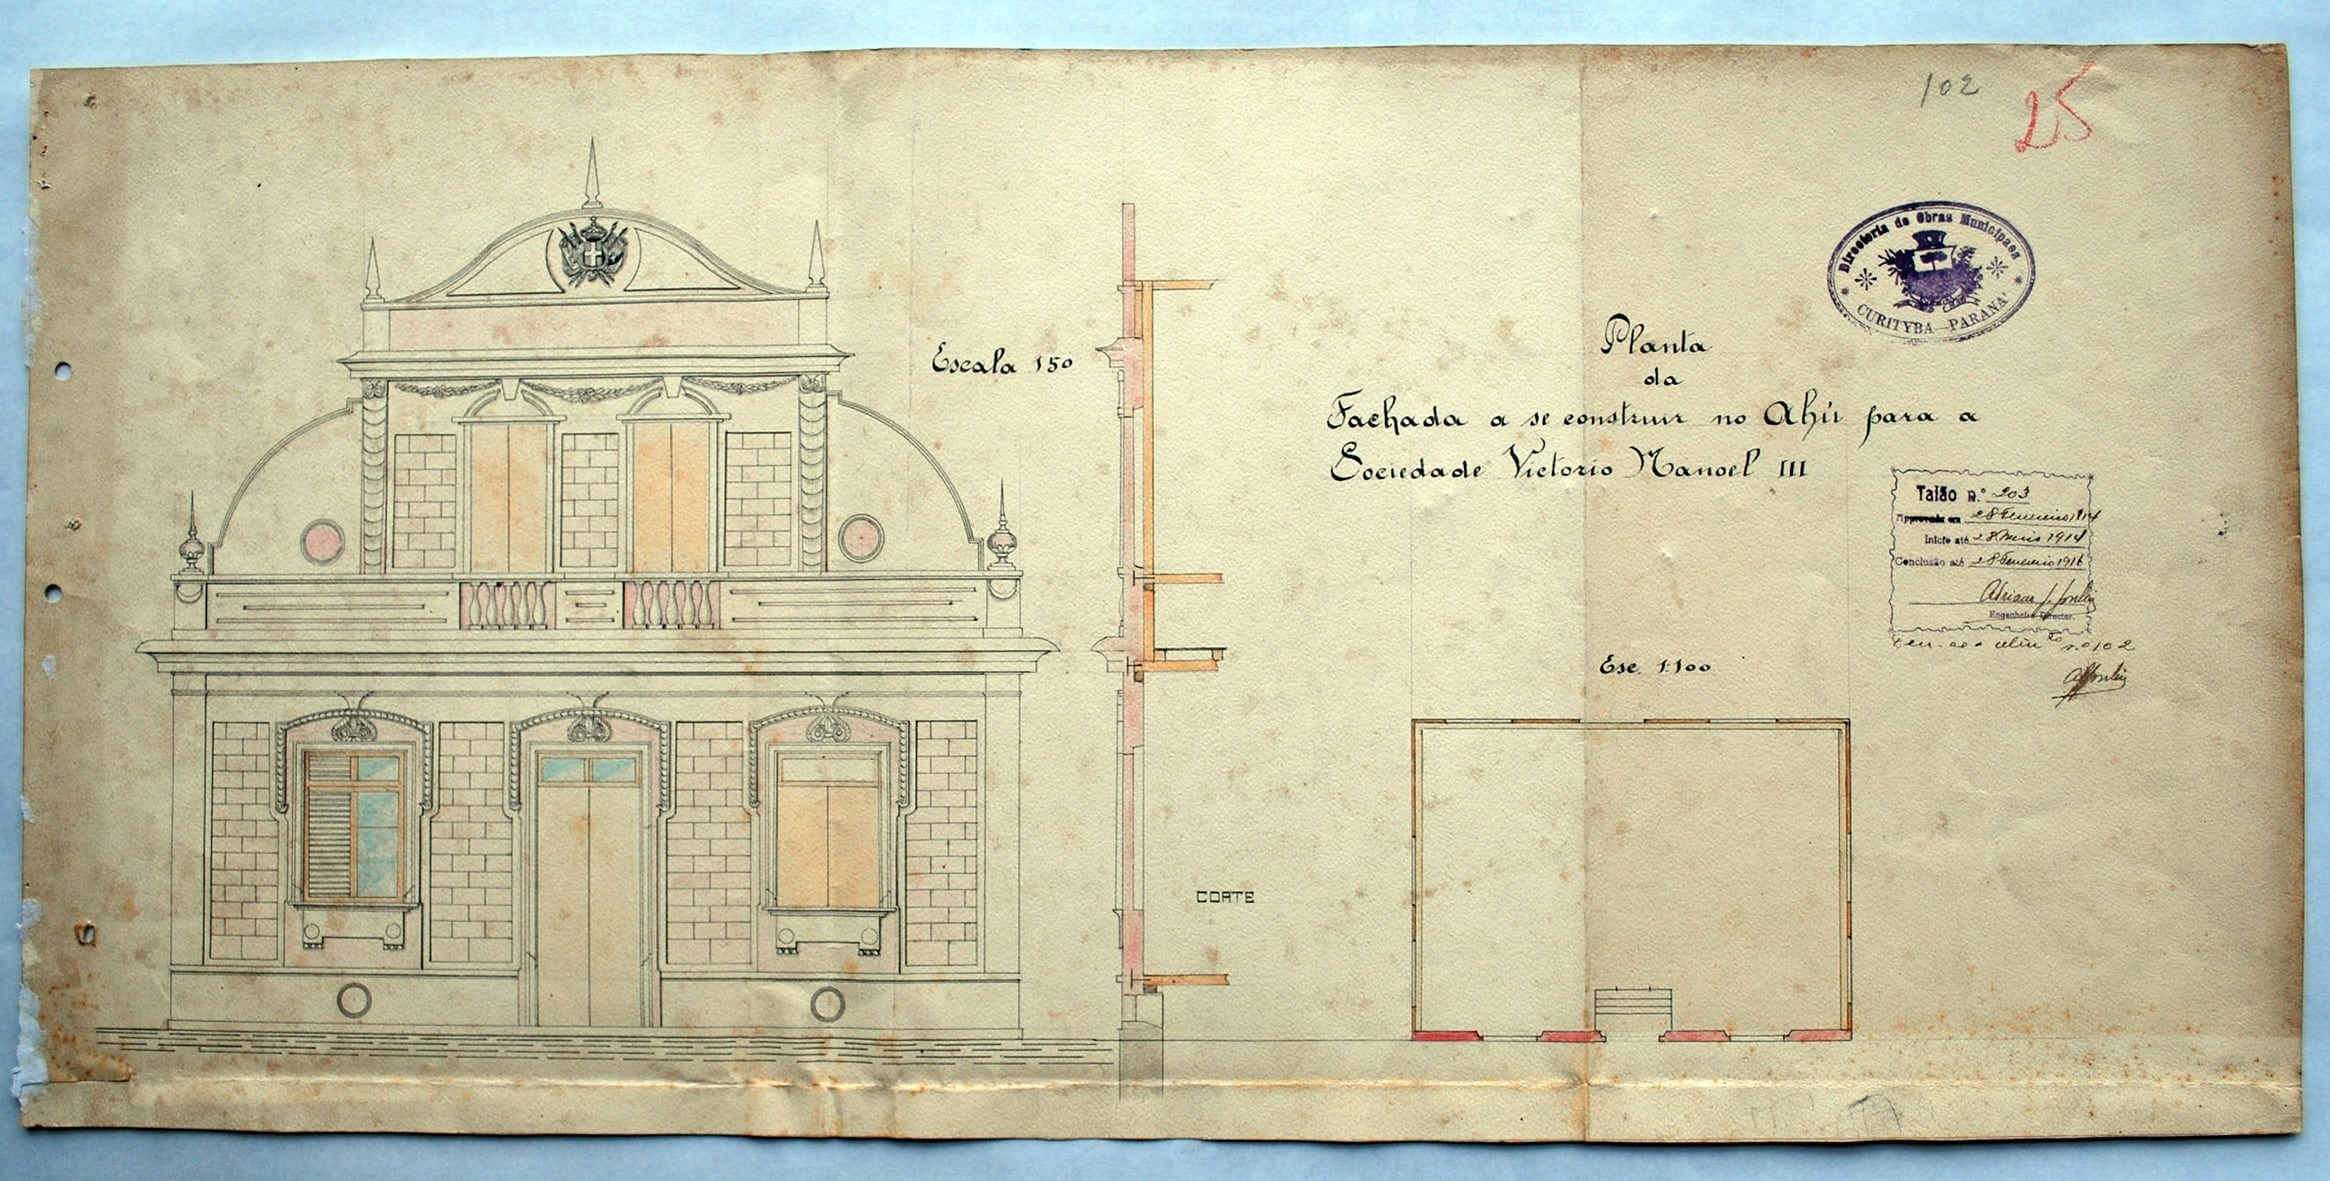 102
25
Directoria de Obras Municipaes
CURITYBA - PARANA'
Escala 1:50
Planta
da
Fachada a se construir no Ahú para a
Sociedade Victorio Manoel III
Talão N.º 203
Approvado em 28 Fevereiro 1914
Inicie até 28 Maio 1914
Conclusão até 28 Fevereiro 1916
Adriano G.
Engenheiro Director.
nº 102
Esc. 1:100
CORTE